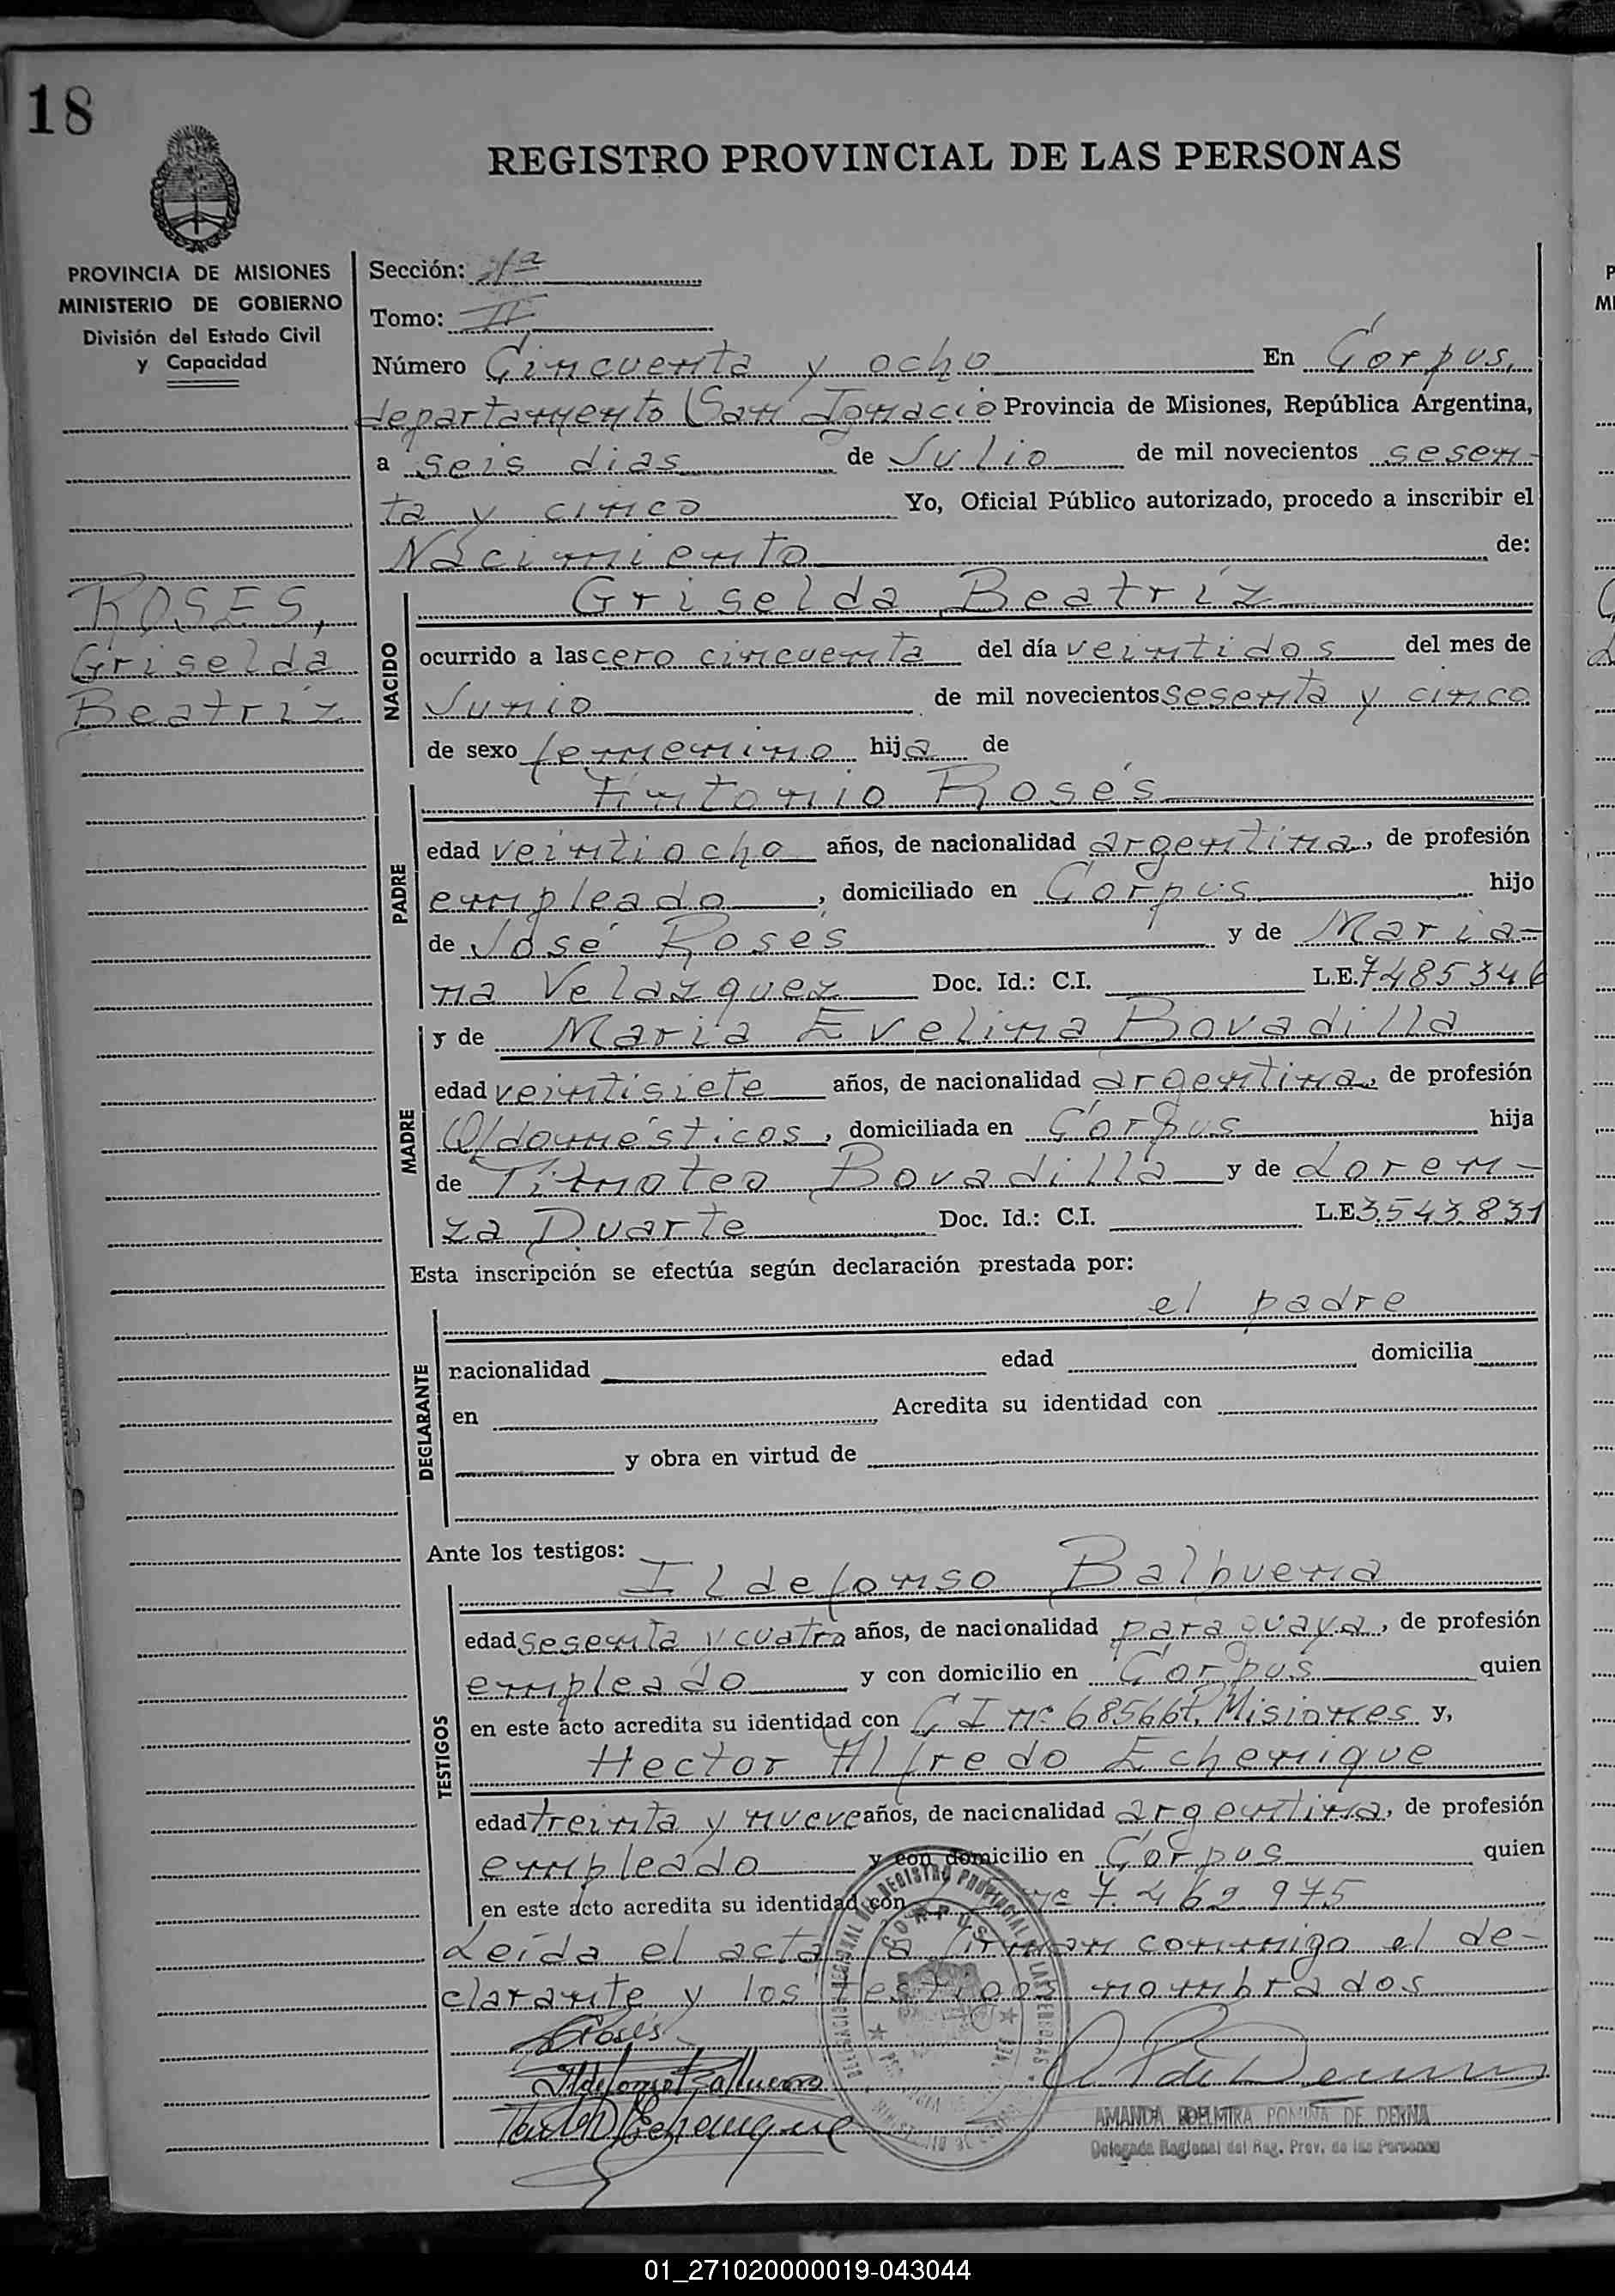 18
REGISTRO PROVINCIAL DE LAS PERSONAS
PROVINCIA DE MISIONES
MINISTERIO DE GOBIERNO
División del Estado Civil
y Capacidad
ROSES,
Griselda
Beatríz
Sección: 1ª
Tomo: II
Número Cincuenta y ocho En Corpus,
departamento San Ignacio Provincia de Misiones, República Argentina,
a seis dias de Julio de mil novecientos sesen-
ta y cinco Yo, Oficial Público autorizado, procedo a inscribir el
Nacimiento de:
NACIDO
Griselda Beatríz
ocurrido a las cero cincuenta del día veintidos del mes de
Junio de mil novecientos sesenta y cinco
de sexo femenino hija de
PADRE
Antonio Rosés
edad veintiocho años, de nacionalidad argentina, de profesión
empleado, domiciliado en Corpus hijo
de José Roses y de Maria-
na Velazquez Doc. Id.: C.I. L.E. 7485346
MADRE
y de Maria Evelina Bovadilla
edad veintisiete años, de nacionalidad argentina, de profesión
Q/domésticos, domiciliada en Corpus hija
de Timoteo Bovadilla y de Loren-
za Duarte Doc. Id.: C.I. L.E 3.543.831
Esta inscripción se efectúa según declaración prestada por:
DECLARANTE
el padre
nacionalidad edad domicilia
en Acredita su identidad con
y obra en virtud de
Ante los testigos:
TESTIGOS
Ildefonso Balbuena
edad sesenta y cuatro años, de nacionalidad paraguaya, de profesión
empleado y con domicilio en Corpus quien
en este acto acredita su identidad con C I nº 68566 P. Misiones y,
Hector Alfredo Echenique
edad treinta y nueve años, de nacionalidad argentina, de profesión
empleado y con domicilio en Corpus quien
en este acto acredita su identidad con nº 7.462.975
Leída el acta la firman conmigo el de-
clarante y los testigos nombrados
Rosés
Ildefonso Balbuena
Echenique
CORPUS
AMANDA EDELMIRA DE DERNA
Delegada Regional del Reg. Prov. de las Personas
01_271020000019-043044